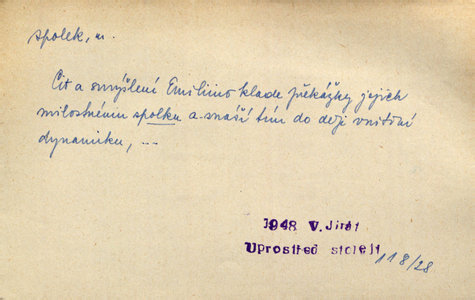 spolek, m.
Cit a smýšlení Emiliino klade překážky jejich
milostnému spolku a snáší tím do děje vnitřní
dynamiku, ...
1948 V. Jirát
Uprostřed století
118/28